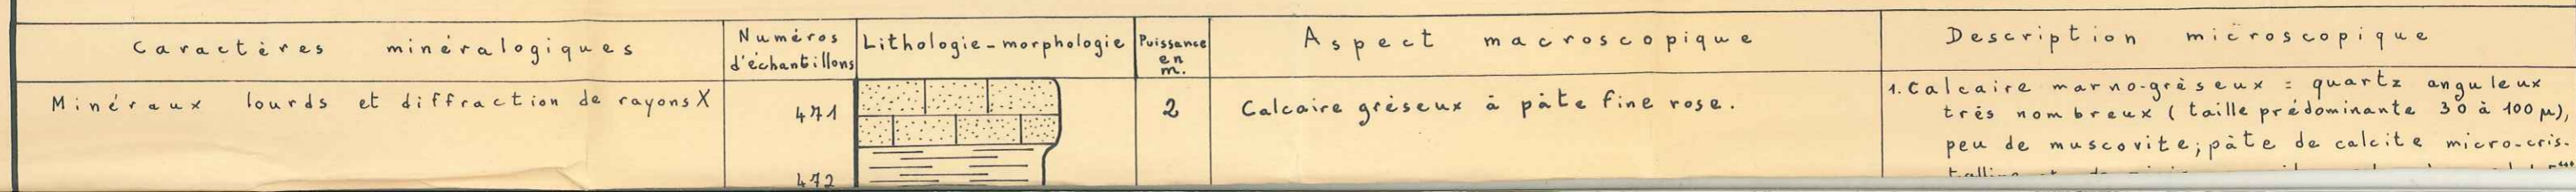 Caractères minéralogiques
Numéros
d'échantillons
Lithologie-morphologie
Puissance
en
m.
Aspect macroscopique
Description microscopique
Minéraux lourds et diffraction de rayons X
471
2
Calcaire gréseux à pâte fine rose.
1. Calcaire marno-gréseux = quartz anguleux
très nombreux (taille prédominante 30 à 100 μ),
peu de muscovite; pâte de calcite micro-cris-
472